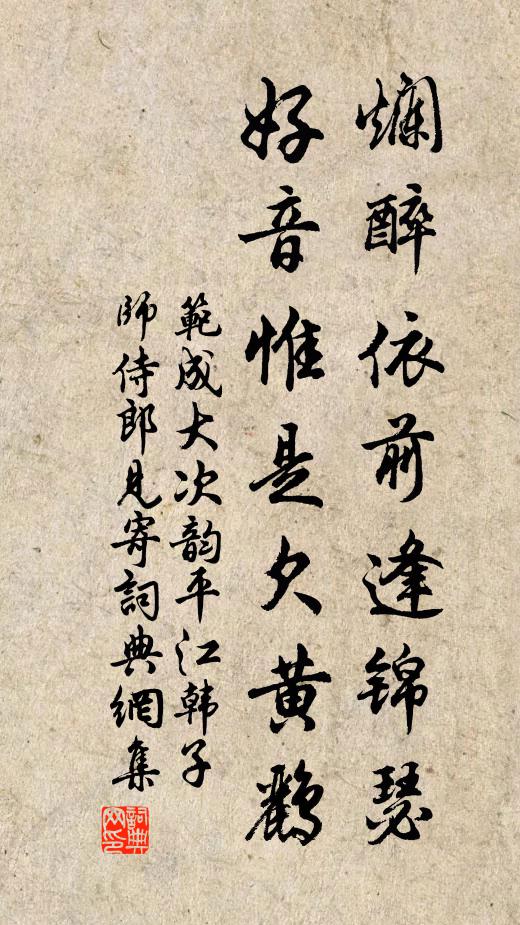 爛醉依前逢锦瑟
好音惟是欠黄鸝
範成大次韵平江韩子
師侍郎見寄詞典網集
詞典网印